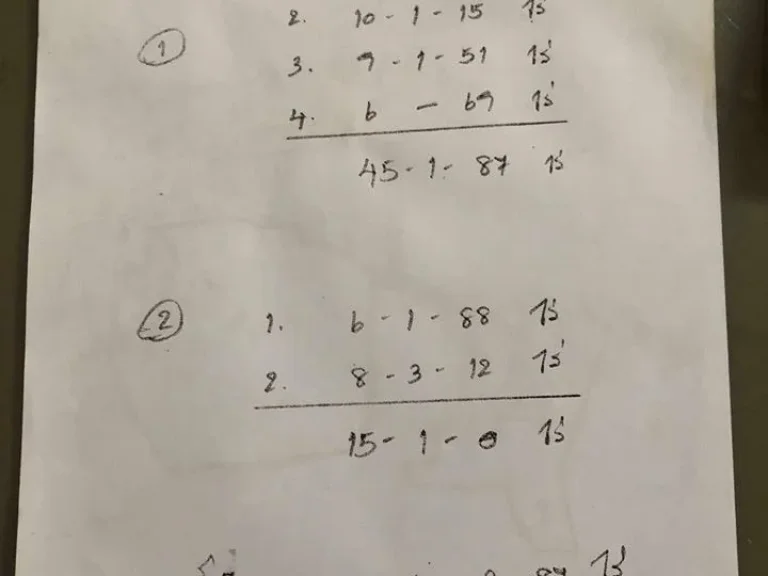 2. 10 - 1 - 15 ไร่
① 3. 9 - 1 - 51 ไร่
4. 6 - 69 ไร่
45 - 1 - 87 ไร่
② 1. 6 - 1 - 88 ไร่
2. 8 - 3 - 12 ไร่
15 - 1 - 0 ไร่
87 ไร่